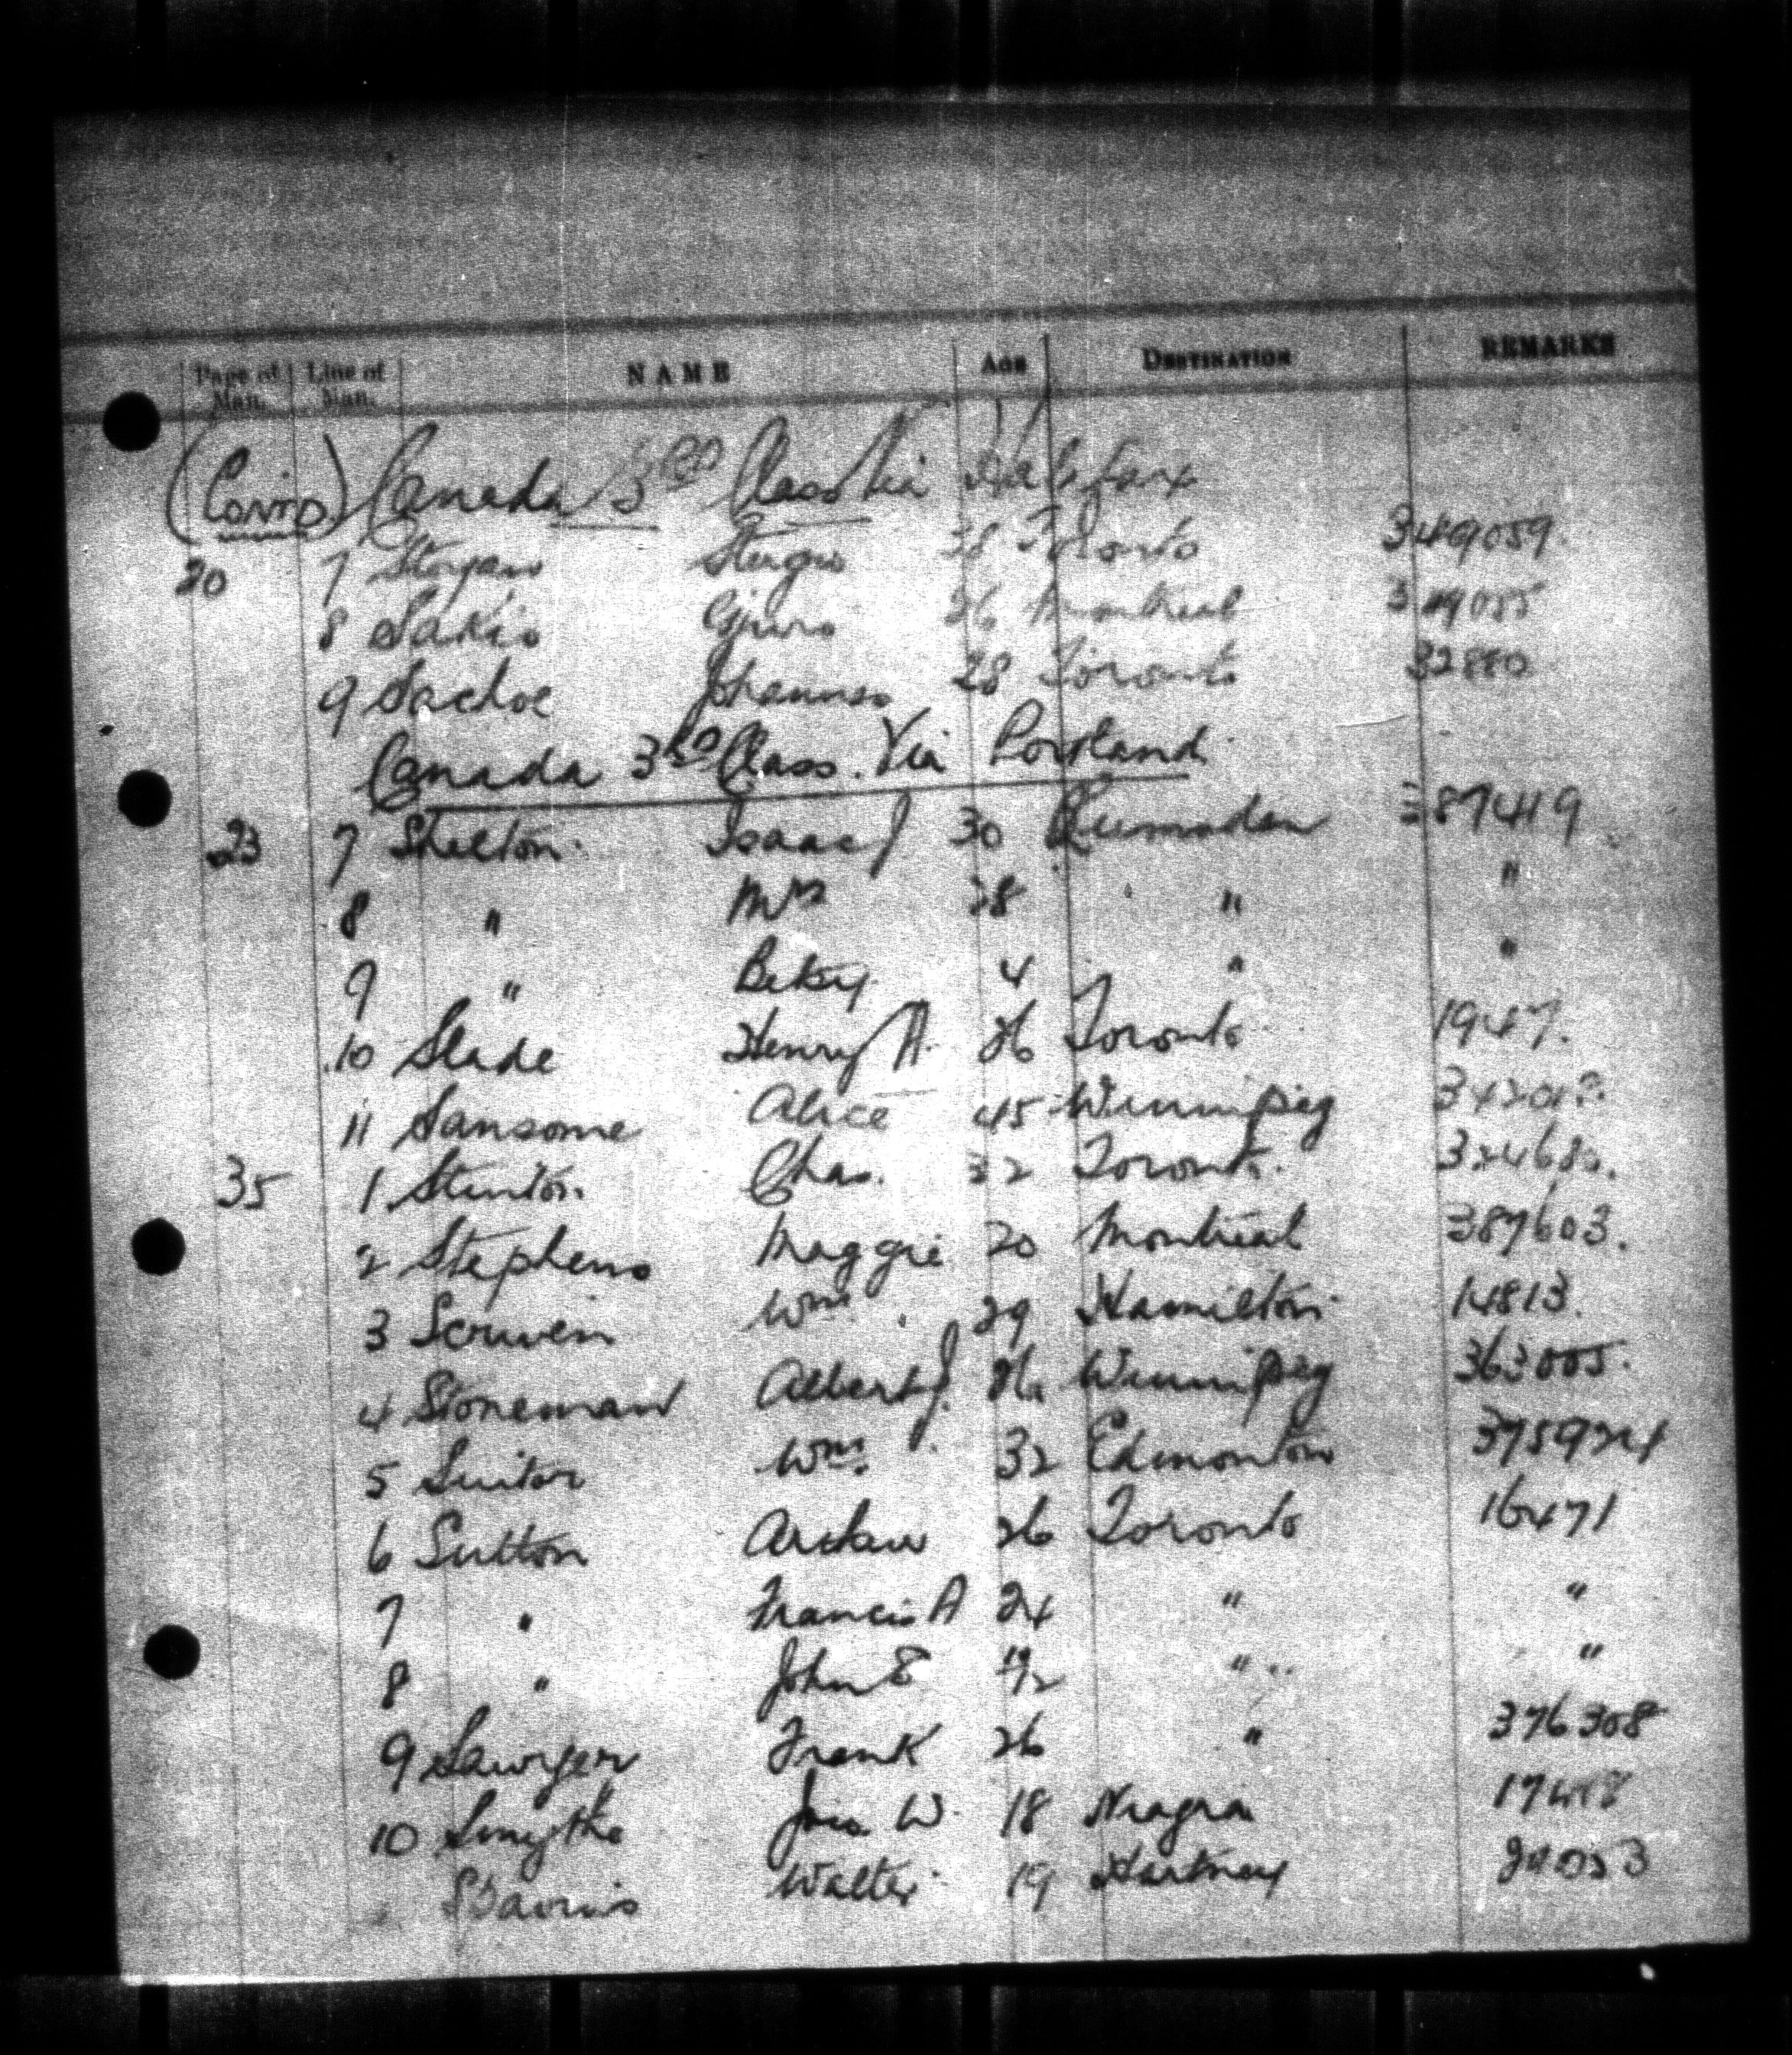 Page of Man. Line of Man. NAME AGE DESTINATION REMARKS
(Contd) Canada 3RD Class Via Halifax
20 7 Stoyan Stergio 38 Toronto 3489059
8 Sakio Gjuro 36 Montreal
9 Johannes 28 Toronto 32880
Canada 3RD Class. Via Portland.
23 7 Shelton. Isaac J 30 Lumsden 387419
8 " Mrs 28 " "
9 " Betsy 4 " "
10 Slade Henry A. 36 Toronto 1947.
11 Sansome Alice 45 Winnipeg
35 1 Stinton. Chas. 32 Toronto.
2 Stephens Maggie 20 Montreal 387603.
3 Scriven Wm. 29 Hamilton 14813.
4 Stoneman Albert J. Winnipeg 363005.
5 Suitor Wm. 32 Edmonton 375924
6 Sutton 26 Toronto 16471
7 " Francis A 24 " "
8 " John E " "
9 Sawyer Frank 26 " 376308
10 Smythe Jno. W. 18 Niagra
Walter 19 Hartney